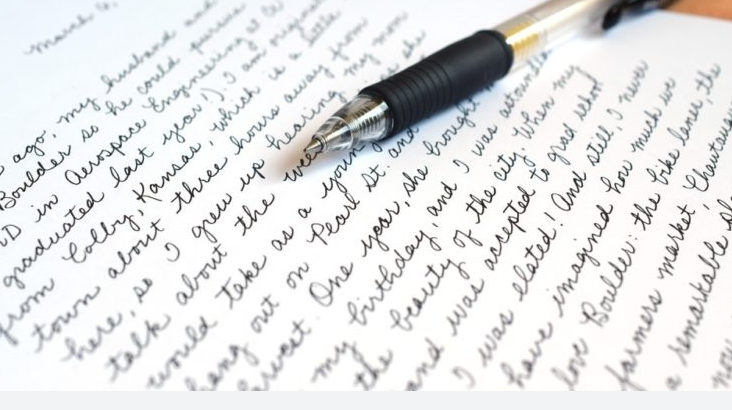 March 6,
ago, my husband and
Boulder so he could pursue
in Aerospace Engineering at
graduated last year!) I am
from Colby, Kansas, which is a little
town about three hours away from
here, so I grew up hearing my mom
talk about the she
would take as a young
hang out on Pearl St. and
One year, she brought
my birthday, and I was
the beauty of the city. When my
and was accepted to grad school
I was elated! And still, I never
have imagined how much we
love Boulder: the bike lanes, the
farmers market,
a remarkable